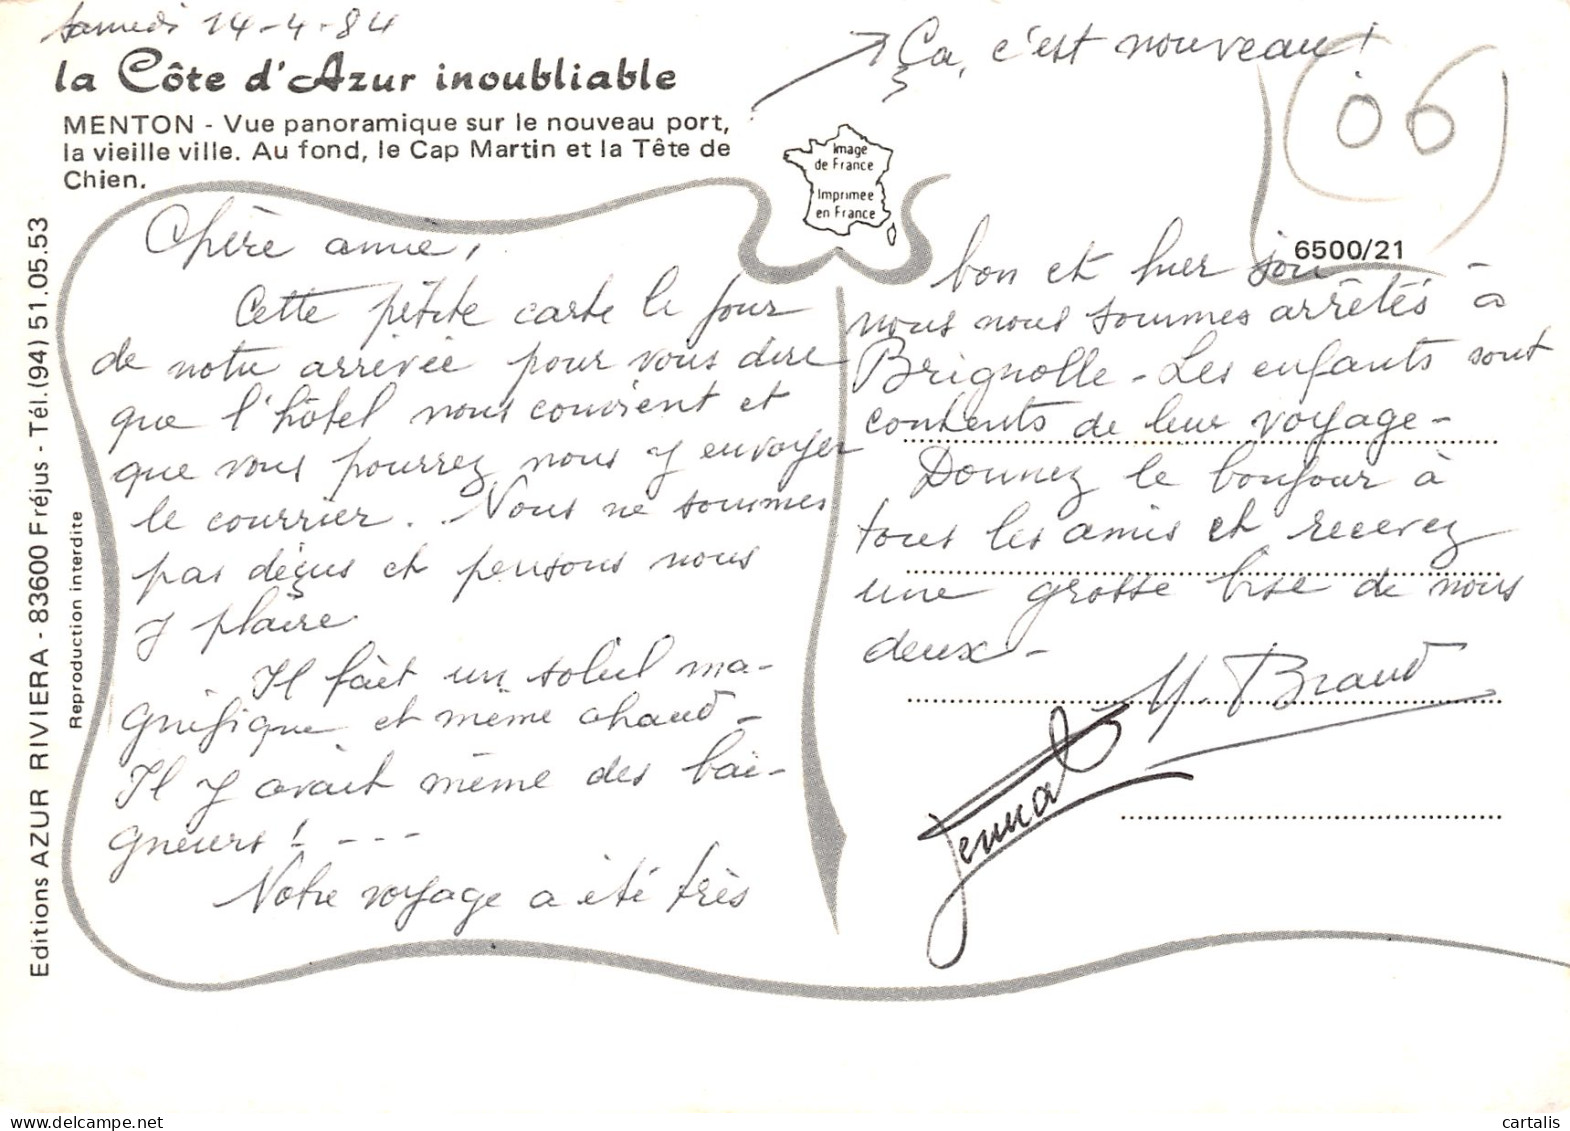 Samedi 14-4-84
la Côte d'Azur inoubliable
MENTON - Vue panoramique sur le nouveau port,
la vieille ville. Au fond, le Cap Martin et la Tête de
Chien.
Ça, c'est nouveau!
06
Image
de France
Imprimee
en France
6500/21
Editions AZUR RIVIERA - 83600 Fréjus - Tél.(94) 51.05.53
Reproduction interdite
Chère amie,
Cette petite carte le jour
de notre arrivée pour vous dire
que l'hôtel nous convient et
que vous pourrez nous y envoyer
le courrier. Nous ne sommes
pas déçus et pensons nous
y plaire
Il fait un soleil ma-
gnifique et même chaud -
Il y avait même des bai-
gneurs! ---
Notre voyage a été très
bon et hier soir
nous nous sommes arrêtés à
Brignolle - Les enfants sont
contents de leur voyage -
Donnez le bonjour à
tous les amis et recevez
une grosse bise de nous
deux -
M. Braud
cartalis